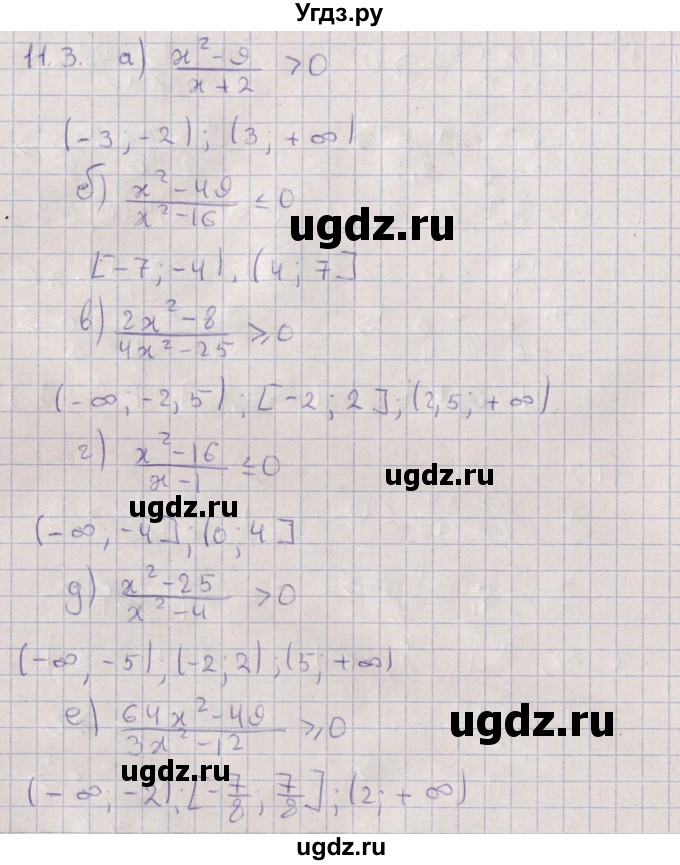 Угдз.ру
11.3. а) (x²-9)/(x+2) > 0
(-3; -2); (3; +∞)
б) (x²-49)/(x²-16) ≤ 0
ugdz.ru
[-7; -4), (4; 7]
в) (2x²-8)/(4x²-25) ≥ 0
(-∞; -2,5); [-2; 2]; (2,5; +∞)
г) (x²-16)/(x-1) ≤ 0
ugdz.ru
ugdz.ru
(-∞, -4]; (0; 4]
д) (x²-25)/(x²-4) > 0
(-∞, -5); (-2; 2); (5; +∞)
е) (64x²-49)/(3x²-12) ≥ 0
ugdz.ru
ugdz.ru
(-∞; -2); [-7/8; 7/8]; (2; +∞)
ugdz.ru